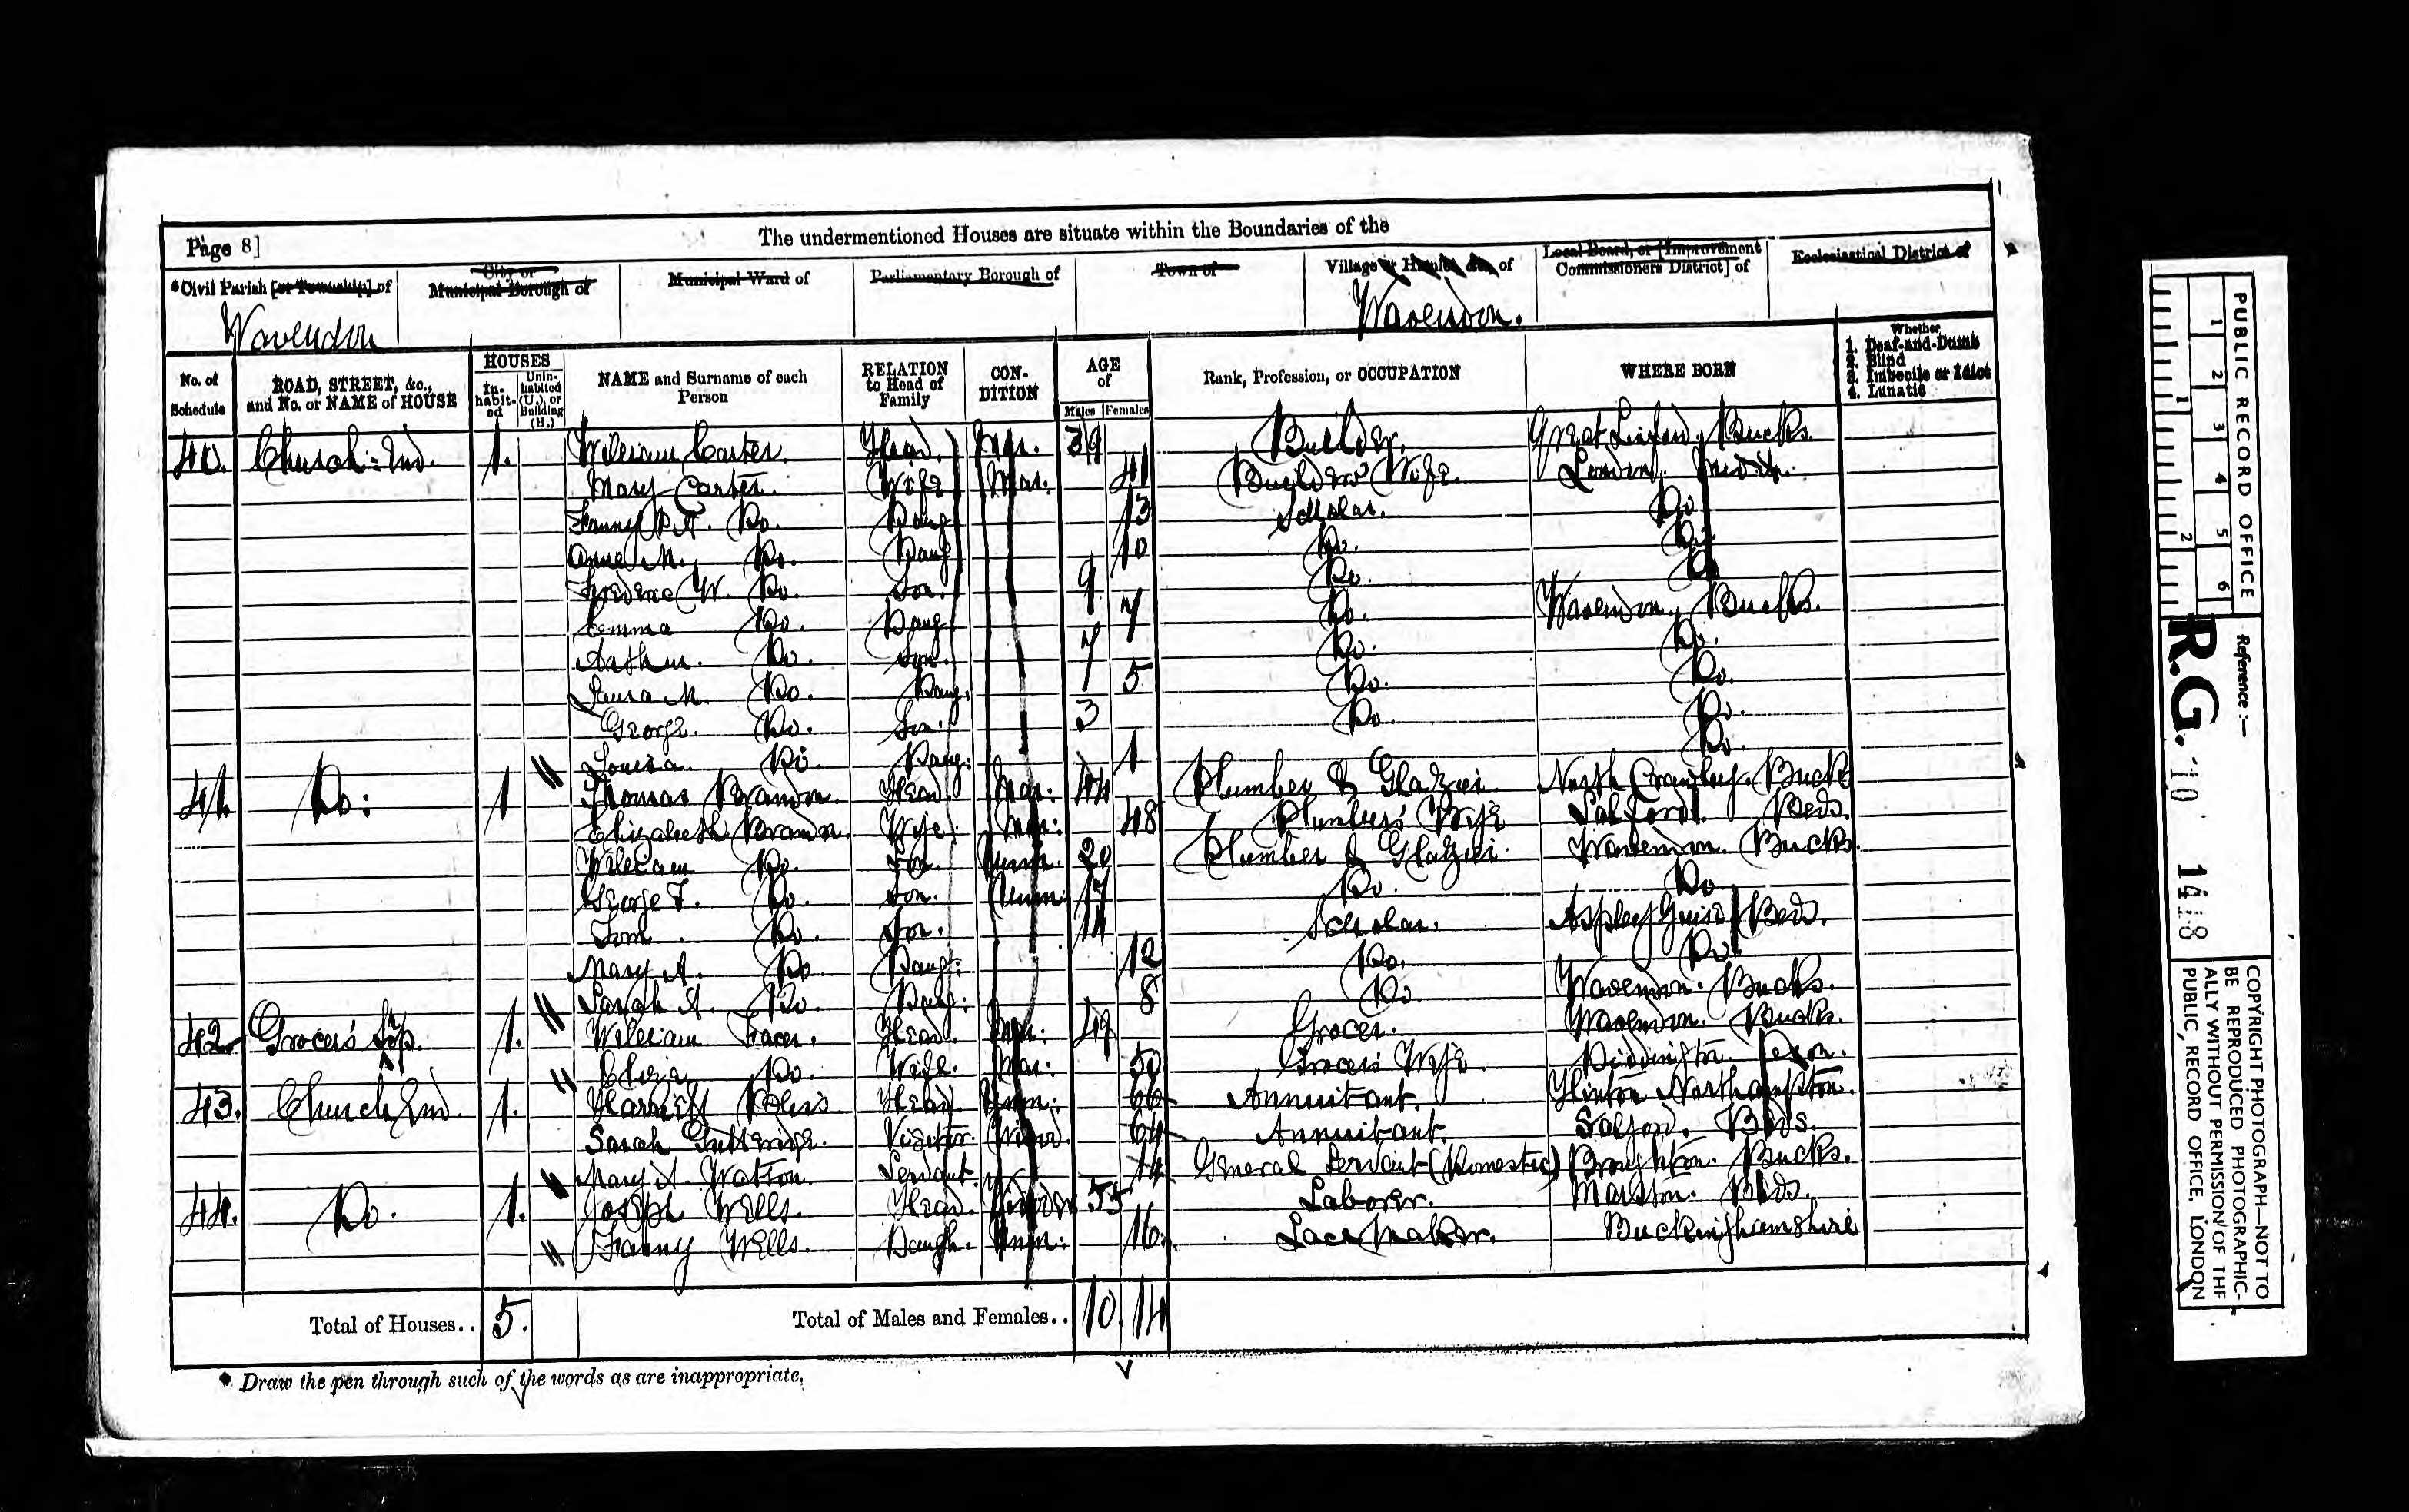 Page 8]
The undermentioned Houses are situate within the Boundaries of the
*Civil Parish [or Township] of
City or Municipal Borough of
Municipal Ward of
Parliamentary Borough of
Town of
Village or Hamlet, &c., of
Local Board, or [Improvement Commissioners District] of
Ecclesiastical District of
Wavendon
Wavendon.
No. of Schedule
ROAD, STREET, &c., and No. or NAME of HOUSE
HOUSES
In-habit-ed
Unin-habited (U.), or Building (B.)
NAME and Surname of each Person
RELATION to Head of Family
CON-DITION
AGE of
Males
Females
Rank, Profession, or OCCUPATION
WHERE BORN
Whether
1. Deaf-and-Dumb
2. Blind
3. Imbecile or Idiot
4. Lunatic
40. Church End. 1. William Carter. Head. Mar. 39 Builder. Great Linford, Bucks.
Mary Carter. Wife Mar. 41 Builders Wife. London, Middx.
Fanny Do. Daug 13 Scholar. Do
Anne M. Do. Daug 10 Do. Do
Frederic W. Do. Son. 9 Do. Do
Emma Do. Daug 7 Do. Wavendon, Bucks.
Arthur. Do. Son. 7 Do. Do.
Laura M. Do. Daug. 5 Do. Do.
George. Do. Son. 3 Do. Do.
Louisa. Do. Daug. 1 Do.
41. Do. 1 Thomas Head. Mar. 44 Plumber & Glazier North Crawley. Bucks
Elizabeth Wife Mar. 48 Plumber's Wife Salford. Beds.
William Do. Son. Unm. 20 Plumber & Glazier. Wavendon. Bucks.
George F. Do. Son. Unm. 17 Do. Do.
Tom. Do. Son. 14 Scholar. Aspley Guise Beds.
Mary A. Do Daug. 12 Do. Do
Sarah A. Do. Daug. 8 Do. Wavendon. Bucks.
42. Grocer's Shop. 1. William Head. Mar. 49 Grocer. Wavendon. Bucks.
Eliza Do. Wife. Mar. 50 Grocer's Wife Oxon.
43. Church End. 1. Harriett Bliss Head. Unm. 66 Annuitant. Northampton.
Sarah Gutteridge. Visitor. Widow 64 Annuitant. Salford. Beds.
Mary A. Watton. Servant. 14 General Servant (Domestic) Broughton. Bucks.
44. Do. 1. Joseph Wells. Head. Widower 55 Laborer. Marston. Beds.
Fanny Wells. Daugh. Unm. 16. Lace Maker. Buckinghamshire
Total of Houses.. 5. Total of Males and Females.. 10 14
* Draw the pen through such of the words as are inappropriate.
PUBLIC RECORD OFFICE
1 2 3 4 5 6
1 2
Reference:—
R.G. 10 1418
COPYRIGHT PHOTOGRAPH—NOT TO
BE REPRODUCED PHOTOGRAPHIC-
ALLY WITHOUT PERMISSION OF THE
PUBLIC RECORD OFFICE, LONDON